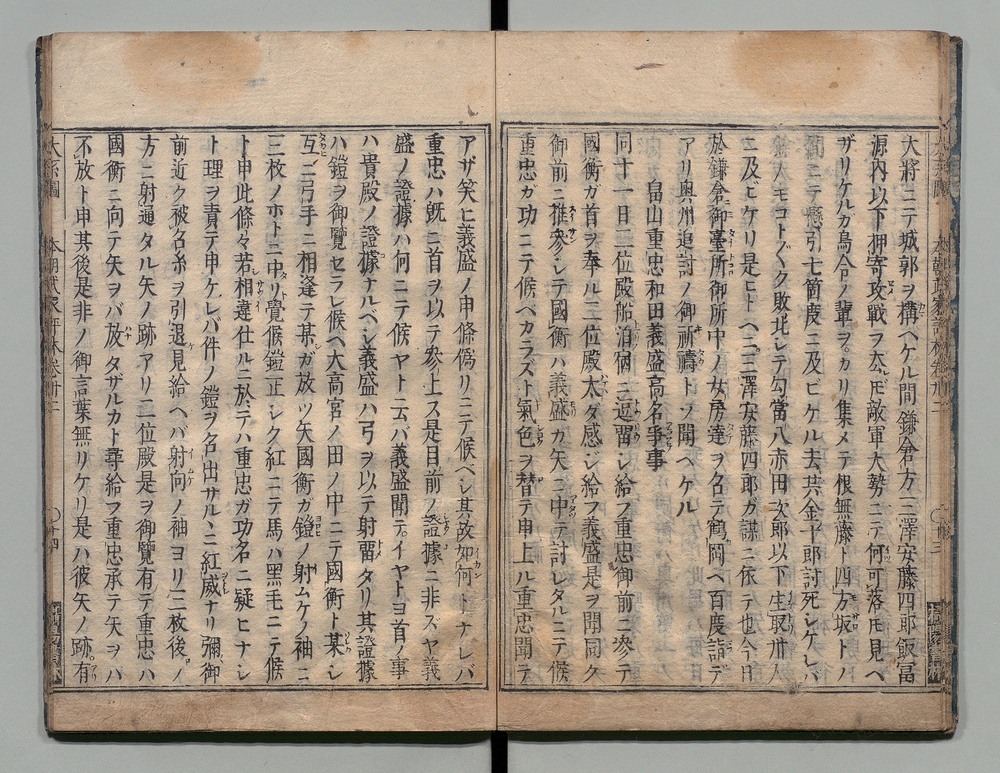 大將ニテ城郭ヲ構ヘケル間鎌倉方ニ三澤安藤四郎飯冨
源内以下押寄攻戰ヲ云𪜈敵軍大勢ニテ何可落𪜈見ヘ
ザリケルガ烏合ノ輩ヲカリ集メテ根無藤ト四方坂トノ
間ニテ懸引七箇度ニ及ビケル去共金十郎討死シケレバ
大モコトゞク敗北シテ勾當八赤田次郎以下生取卅人
ニ及ビケリ是ヒトヘニ三澤安藤四郎ガ謀ニ依テ也今日
於鎌倉御臺所御所中ノ女房達ヲ名テ鶴岡ヘ百度詣デ
アリ奥州追討ノ御祈禱トソ聞ヘケル
畠山重忠和田義盛高名爭事
同十一日二位殿船泊宿ニ逗留シ給フ重忠御前ニ參テ
國衡ガ首ヲ奉ル二位殿太タ感ジ給フ義盛是ヲ聞同ク
御前ニ推參シテ國衡ハ義盛カ矢ニ中テ討レタルニテ候
重忠ガ功ニテ候ベカラズト氣色ヲ替テ申上ル重忠聞テ
アザ笑ヒ義盛ノ申條僞リニテ候ベシ其故如何トナレバ
重忠ハ既ニ首ヲ以テ參上ス是目前ノ證據ニ非スヤ義
盛ノ證據ハ何ニテ候ヤト云バ義盛聞テイヤトヨ首ノ事
ハ貴殿ノ證據ナルベシ義盛ハ弓ヲ以テ射畱タリ其證據
ハ鎧ヲ御覽セラレ候ヘ大高宮ノ田ノ中ニテ國衡ト某シ
互ニ弓手ニ相逢テ某ガ放ツ矢國衡ガ鎧ノ射ムケノ袖ニ
三枚ノホトニ中リト覺候鎧正シク紅ニテ馬ハ黑毛ニテ候
ト申此條々若相違仕ルニ於テハ重忠ガ功名ニ疑ヒナシ
ト理ヲ責テ申ケレバ件ノ鎧ヲ名出サルヽニ紅威ナリ彌御
前近ク被名糸ヲ引退見給ヘバ射向ノ袖ヨリ三枚後ノ
方ニ射通タル矢ノ跡アリ二位殿是ヲ御覽有テ重忠ハ
國衡ニ向テ矢ヲバ放タザルカト尋給フ重忠承テ矢ヲハ
不放ト申其後是非ノ御言葉無リケリ是ハ彼矢ノ跡有
本朝武家評林卷卅二
十四